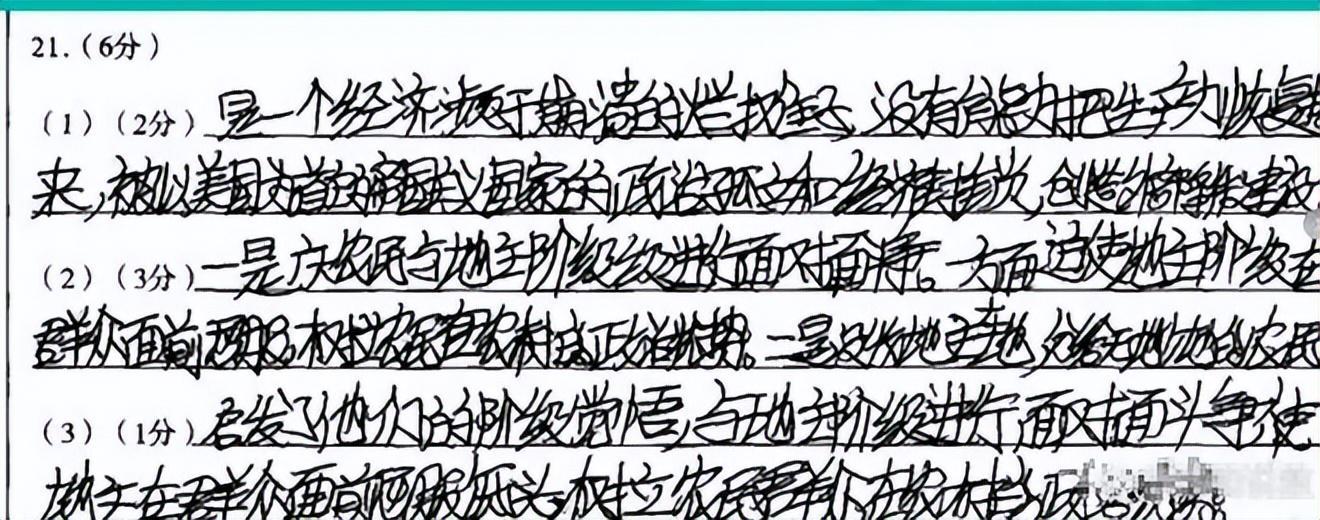 21.(6分)
(1)(2分)是一个经济濒于崩溃的烂摊子,没有能力把生产力恢复起
来,被以美国为首的帝国主义国家的政治孤立和经济封锁,创造
(2)(3分)一是广大农民与地主阶级进行面对面斗争。一方面迫使地主阶级在
群众面前,树立农民在农村政治优势。二是没收地主土地,分给无地少地的农民
(3)(1分)启发了他们的阶级觉悟,与地主阶级进行面对面斗争,使
地主在群众面前低头,树立农民群众在农村